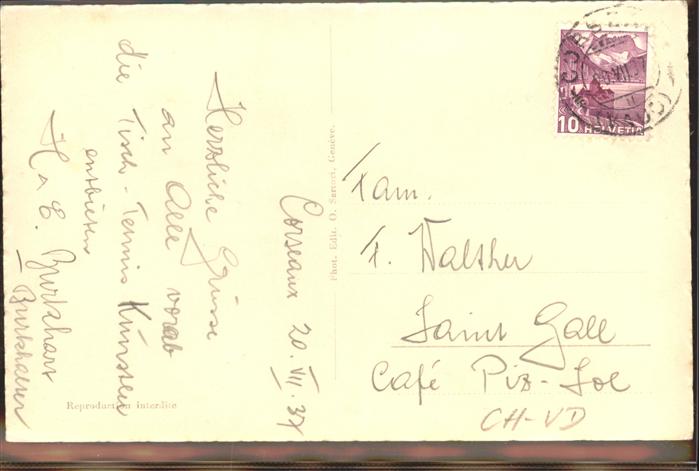 Corseaux 20. VII. 37
Herzliche Grüsse
an Alle vorab
die Tisch-Tennis Künstler
entbieten
H & E. Burkhart
Burkhalter
Reproduction interdite
Phot. Edit. O. Sartori, Genève.
10 HELVETIA
CORSEAUX
VII.37
Fam.
F. Walther
Saint Gall
Café Piz-Sol
CH-VD